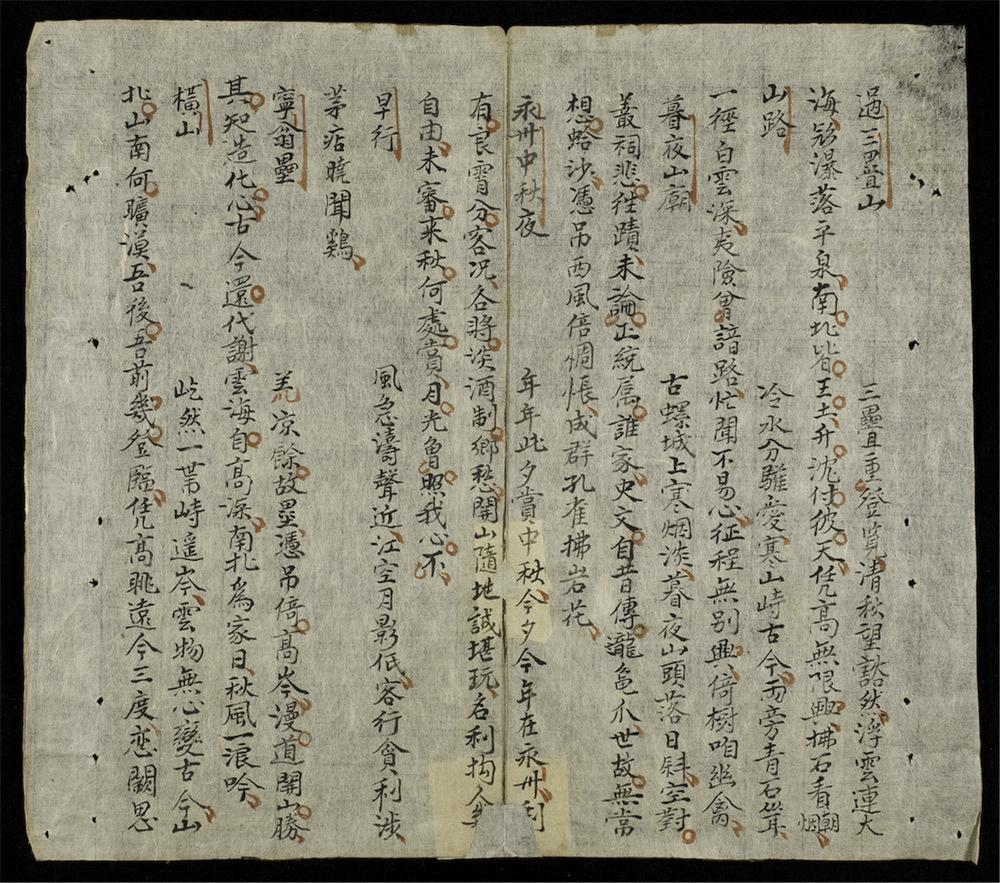 過三疊山
三疊重登覽清秋望豁然浮雲連大
海瀑落平泉南北皆王土升沈付彼天凭高無限興拂石看朝烟
山路
冷水分難愛寒山峙古今兩旁青石聳
一徑白雲深夷險曾諳路忙閒不易心征程無別興倚樹咱幽禽
暮夜山廟
古螺城上寒烟淡暮夜山頭落日斜空對
叢祠悲往蹟未論正統屬誰家史文自昔傳瀧龜爪世故無常
想蛤沙憑吊西風倍惆悵成群孔雀拂岩花
永州中秋夜
年年此夕賞中秋今夕今年在永州利
有良霄分客況各將淡酒制鄉愁開山隨地誠堪玩名利拘人
自由未審來秋何處賞月光曾照我心不
早行
風急濤聲近江空月影低客行貪利涉
茅店曉聞鷄
寧翁壘
荒涼餘故壘憑吊倚高岑漫道開山勝
其知造化心古今還代謝雲海自高深南北為家日秋風一浪吟
橫山
屹然一帶峙遥岑雲物無心變古今山
北山南何曠漠吾後吾前幾登臨凭高眺遠今三度恋闕思